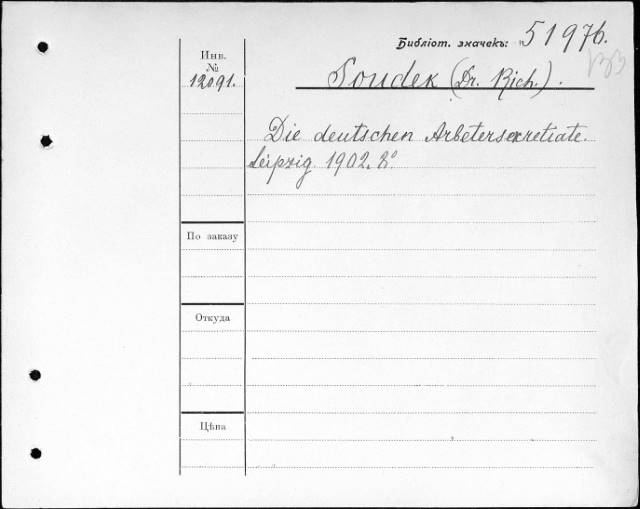 Библіот. значекъ: 51976.
Инв.
№
12091.
Soudek (Dr. Rich.).
Die deutschen Arbetersekretiate.
Leipzig. 1902. 8º
По заказу
Откуда
Цѣна